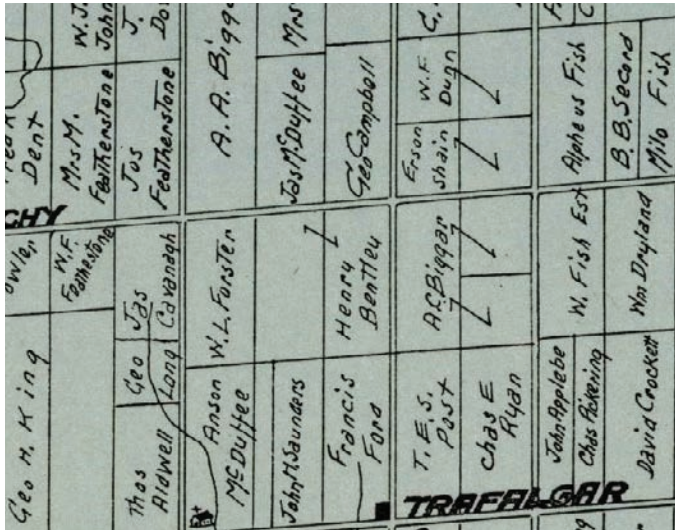 W.J.
John
J.
Do
A. A. Bigg
Mrs
C.
Dent
Mrs M.
Featherstone
Jos
Featherstone
Jas McDuffee
Geo Campbell
Erson
Shain
W.F.
Dunn
Alpheus Fish
B.B. Secord
Milo Fish
CHY
owler
W.F.
Featherstone
Jas
Cavanagh
W.L. Forster
Henry
Bentley
A.C. Biggar
W. Fish Est
Wm Dryland
Geo M. King
Geo
Long
Thos
Aldwell
Anson
McDuffee
John M Saunders
Francis
Ford
T. E. S.
Post
Chas E
Ryan
John Applebe
Chas Pickering
David Crockett
TRAFALGAR